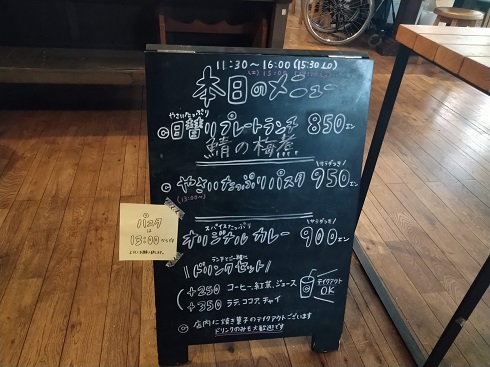 11:30～16:00 (15:30 LO)
本日のメニュー
やさいたっぷり
日替りプレートランチ 850エン
鯖の梅煮
サラダつき
やさいたっぷりパスタ 950エン
(13:00～)
スパイスたっぷり
サラダつき
オリジナル カレー 900エン
ランチとご一緒に
\ドリンクセット/
+250 コーヒー、紅茶、ジュース
+350 ラテ、ココア、チャイ
テイクアウト
OK
◎ 店内に焼き菓子のテイクアウトございます
ドリンクのみも大歓迎です
パスタ
は
13:00からです